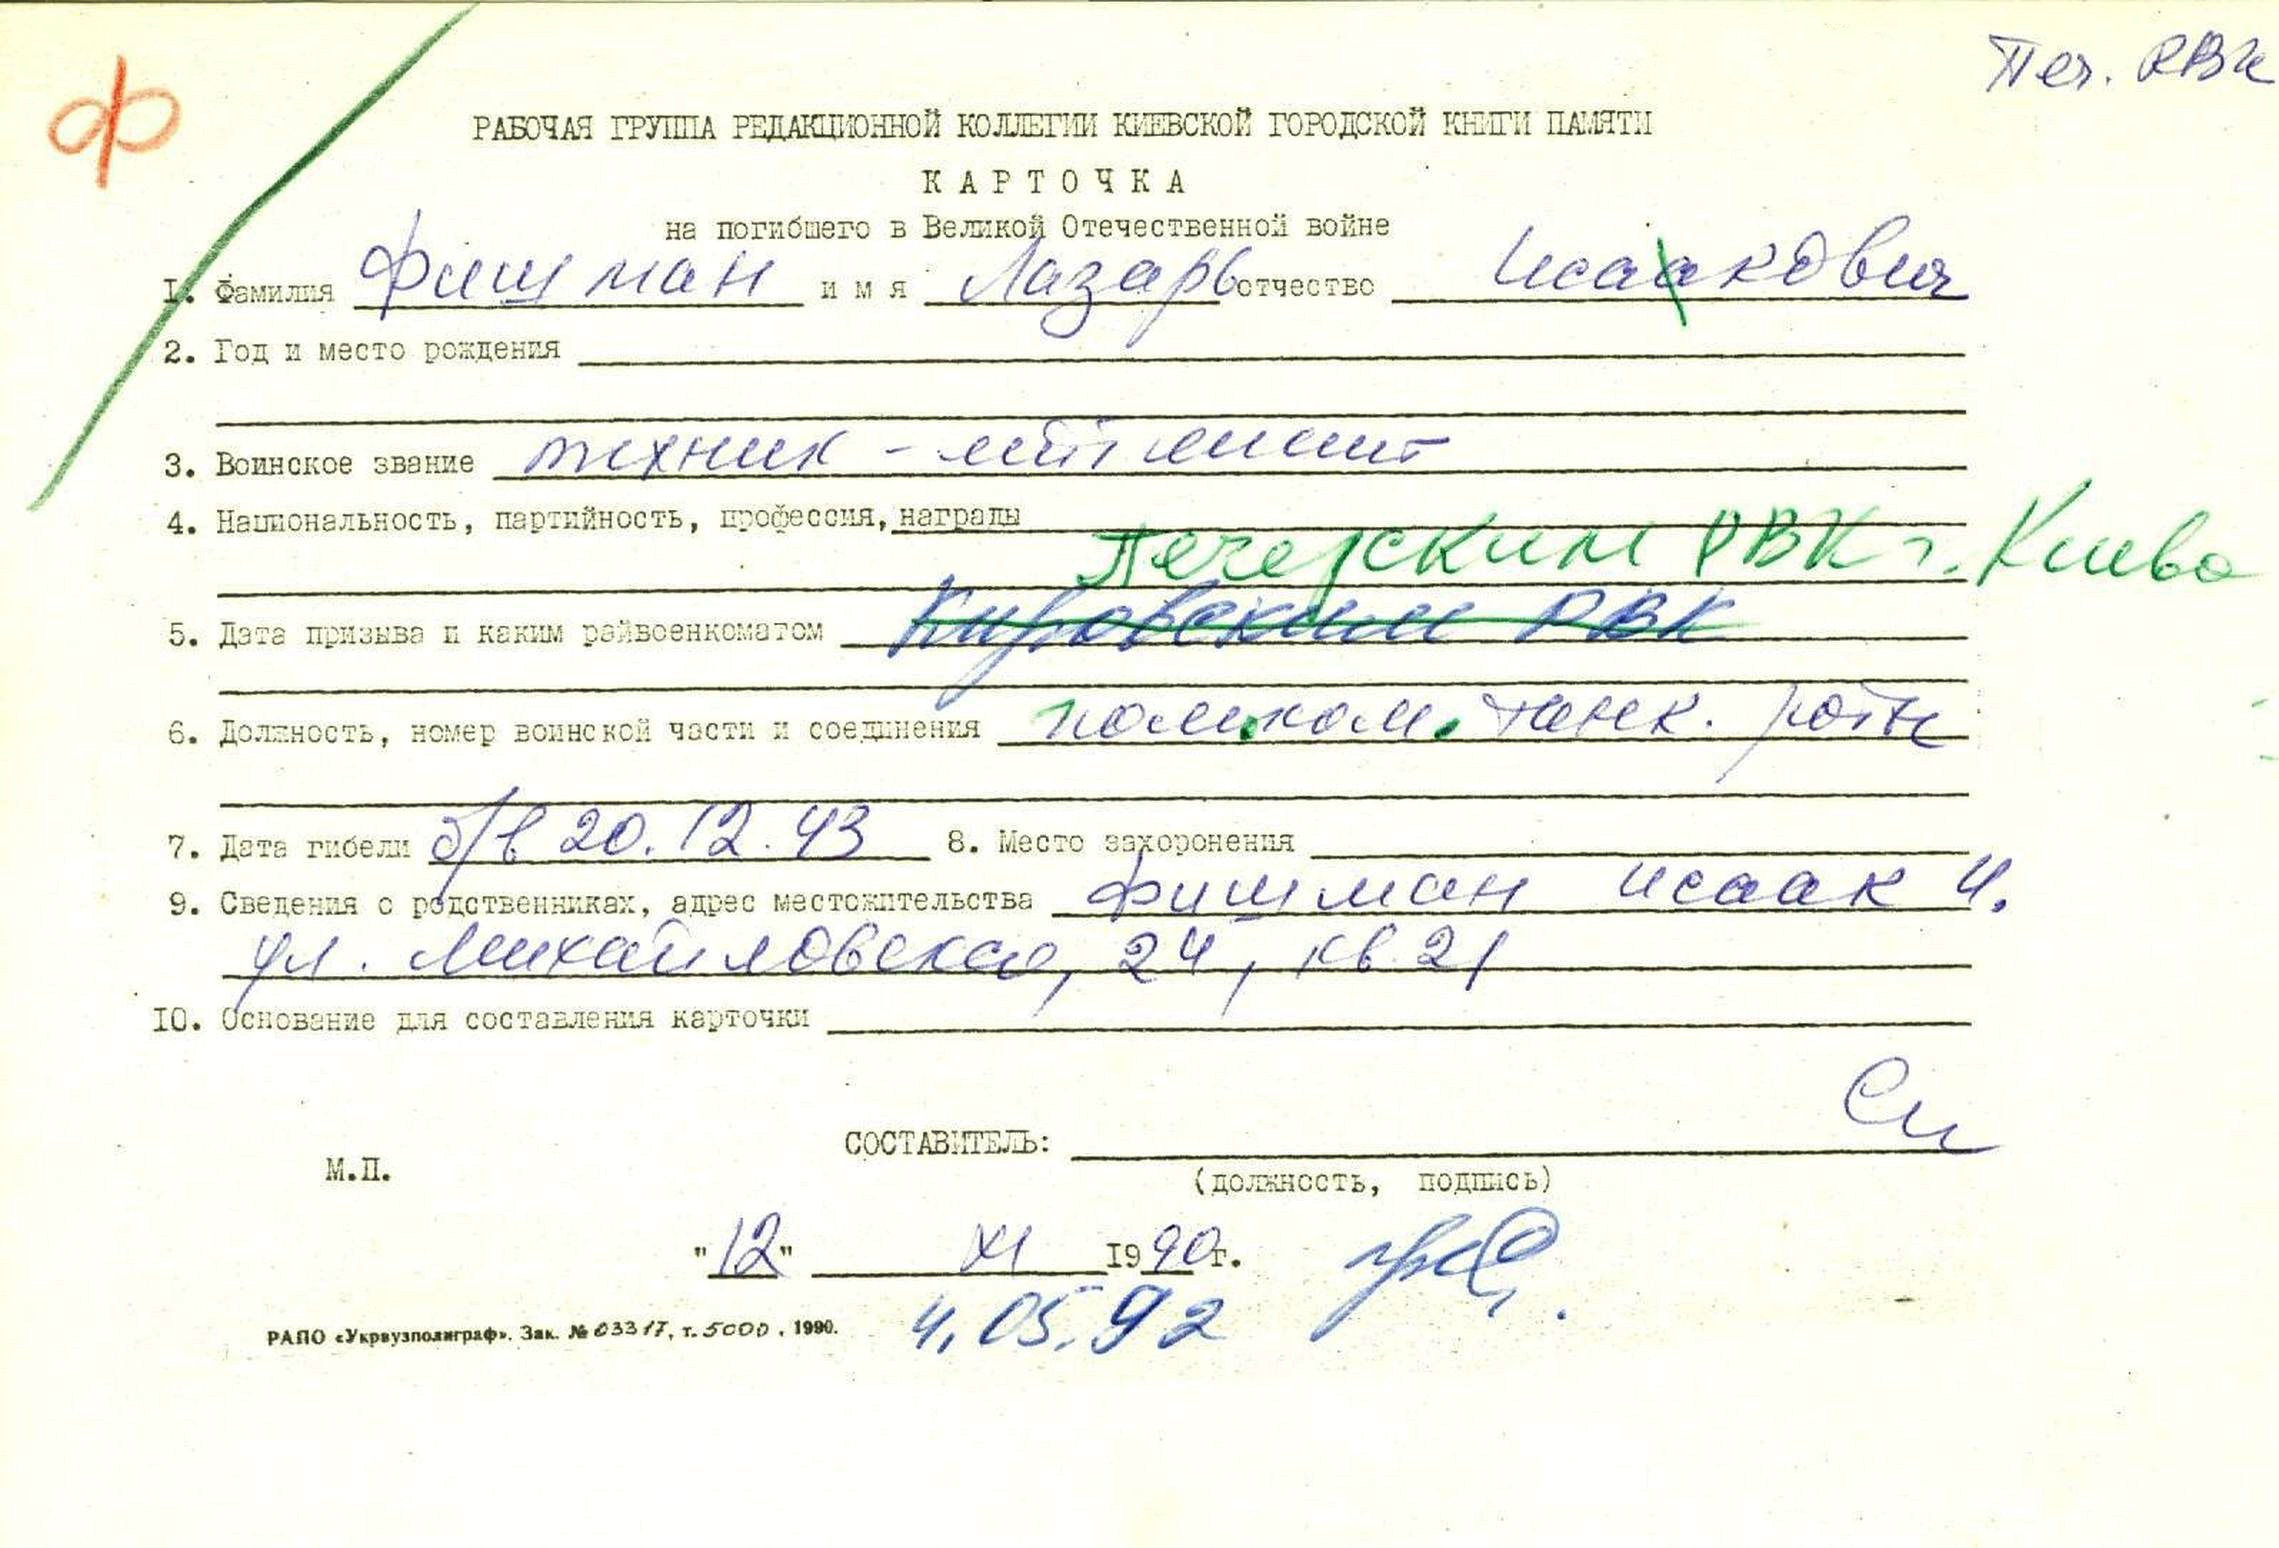 Ф
Печ. РВК
РАБОЧАЯ ГРУППА РЕДАКЦИОННОЙ КОЛЛЕГИИ КИЕВСКОЙ ГОРОДСКОЙ КНИГИ ПАМЯТИ
КАРТОЧКА
на погибшего в Великой Отечественной войне
1. Фамилия Фишман имя Лазарь отчество Исаакович
2. Год и место рождения
3. Воинское звание техник - лейт
4. Национальность, партийность, профессия, награды
Печерским РВК г. Киева
5. Дата призыва и каким райвоенкоматом Кировским РВК
6. Должность, номер воинской части и соединения пом. ком. танк. роты
7. Дата гибели б/в 20.12.43 8. Место захоронения
9. Сведения о родственниках, адрес местожительства Фишман Исаак И.
ул. Михайловская, 24, кв 21
10. Основание для составления карточки
СОСТАВИТЕЛЬ:
М.П.
(должность, подпись)
"12" XI 1990г.
РАПО «Укрвузполиграф». Зак. № 03317, т. 5000, 1990.
4.05.92